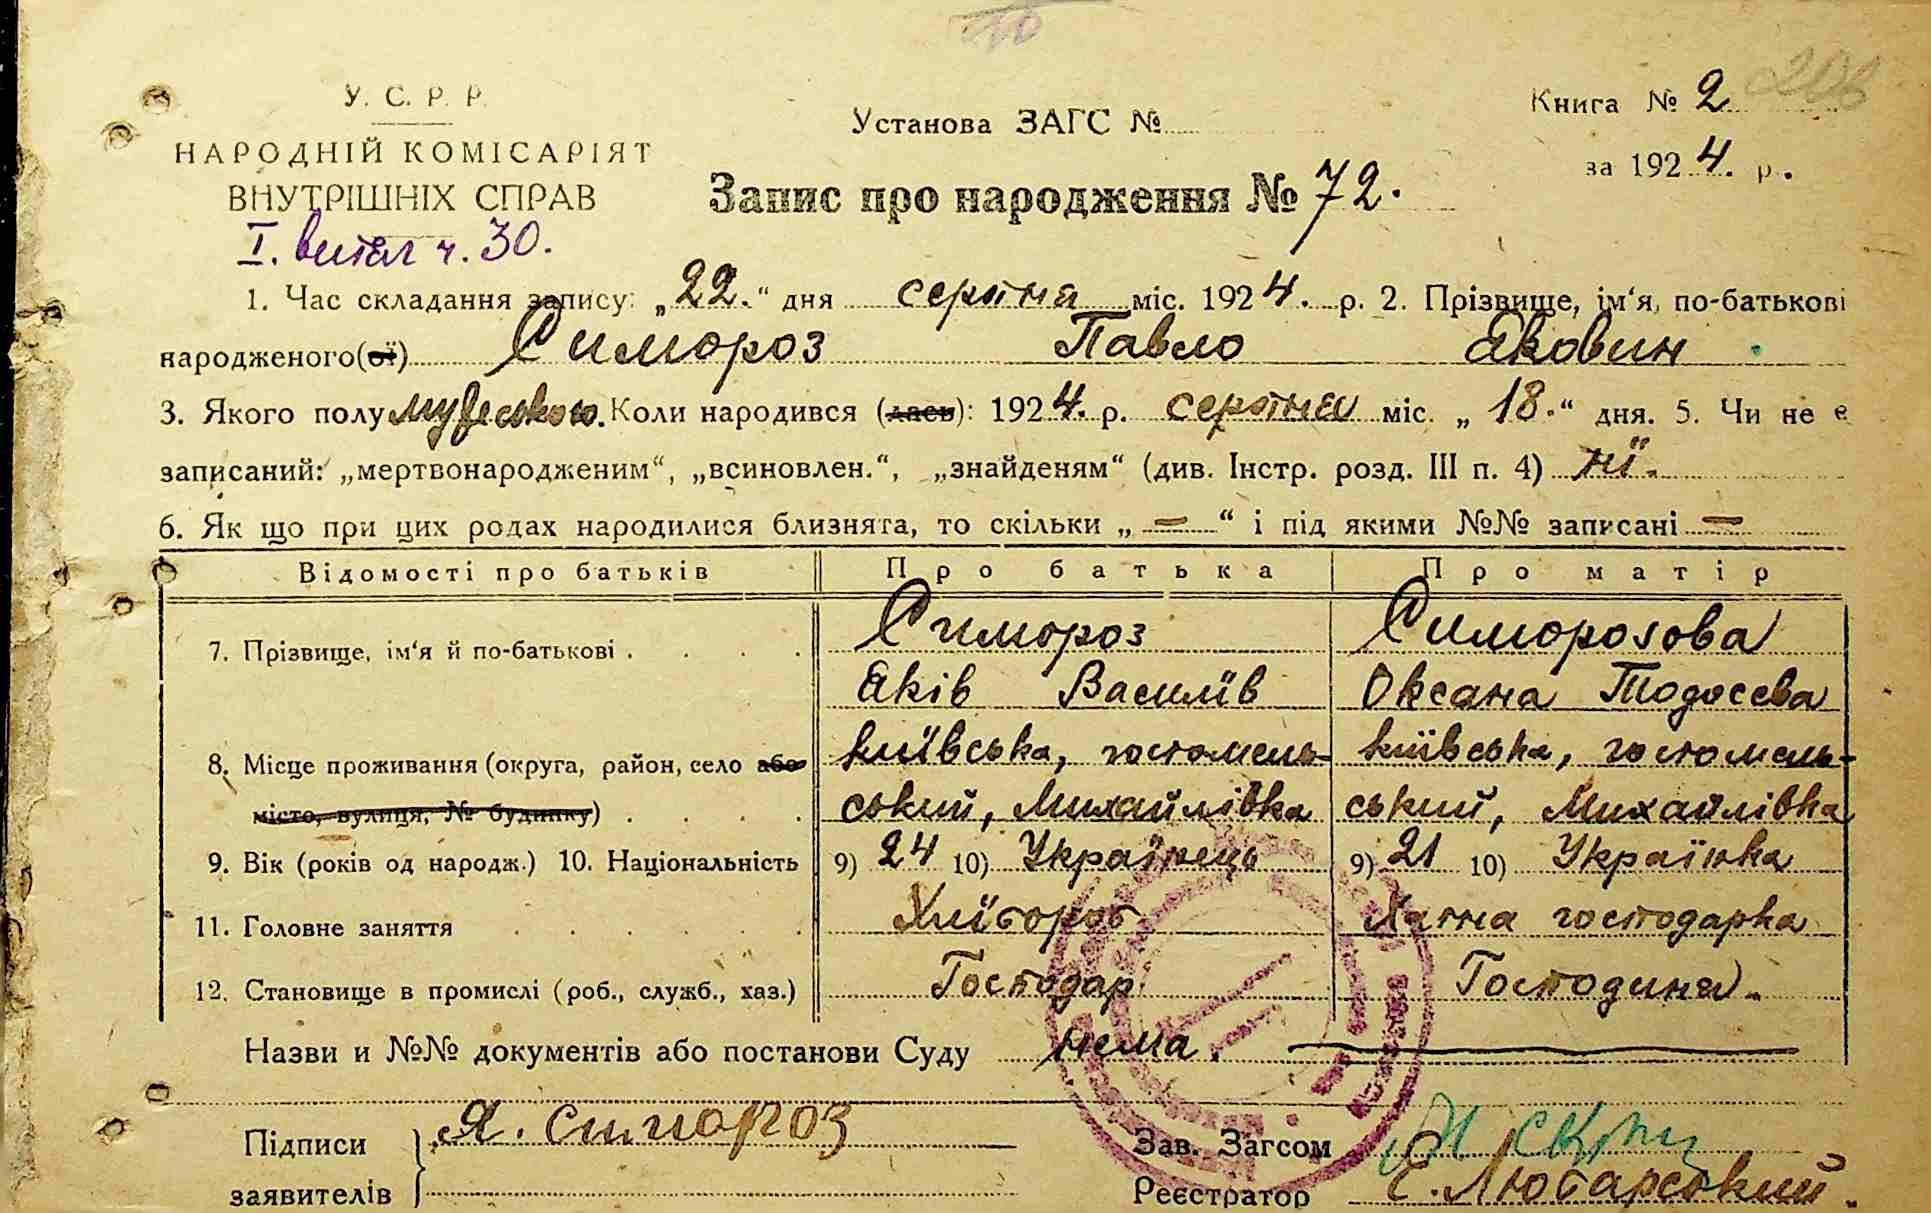 У. С. Р. Р.
НАРОДНІЙ КОМІСАРІЯТ
ВНУТРІШНІХ СПРАВ
І. витяг ч. 30.
Установа ЗАГС №
Запис про народження № 72.
Книга № 2
206
за 1924. р.
1. Час складання запису: „22.“ дня серпня міс. 1924. р. 2. Прізвище, ім‘я, по-батькові
народженого(ої) Симороз Павло Яковин
3. Якого полу мужеського. Коли народився (лась): 1924. р. серпня міс. „18.“ дня. 5. Чи не є
записаний: „мертвонародженим“, „всиновлен.“, „знайденям“ (див. Інстр. розд. III п. 4) ні.
6. Як що при цих родах народилися близнята, то скільки „—“ і під якими №№ записані —
Відомості про батьків Про батька Про матір
7. Прізвище, ім‘я й по-батькові . . . . Симороз Симорозова
Яків Василів Оксана Тодосєва
8. Місце проживання (округа, район, село або київська, гостомель- київська, гостомель-
місто, вулиця, № будинку) . . . . ський, Михайлівка ський, Михайлівка
9. Вік (років од народж.) 10. Національність 9) 24 10) Українець 9) 21 10) Українка
11. Головне заняття . . . . . . Хлібороб Хатня господарка
12. Становище в промислі (роб., служб., хаз.) Господар Господиня.
Назви и №№ документів або постанови Суду нема.
Підписи Я. Симороз Зав. Загсом
заявителів Реєстратор Є. Любарський.